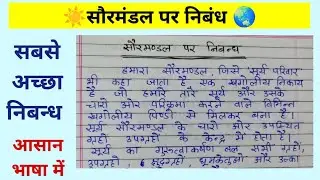 सौरमंडल पर निबंध
सबसे
अच्छा
निबन्ध
आसान
भाषा में
सौरमण्डल पर निबन्ध
हमारा सौरमण्डल, जिसे सूर्य परिवार
भी कहा जाता है एक खगोलीय निकाय
है जो हमारे तारे सूर्य और उसके
चारों ओर परिक्रमा करने वाले विभिन्न
खगोलीय पिण्डों से मिलकर बना है।
सूर्य सौरमण्डल के चारों ओर उपस्थित
ग्रहों उपग्रहों के केन्द्र में होता है।
सूर्य का गुरुत्वाकर्षण बल सभी ग्रहों,
उपग्रहों, क्षुद्रग्रहों, धूमकेतुओं और उल्का